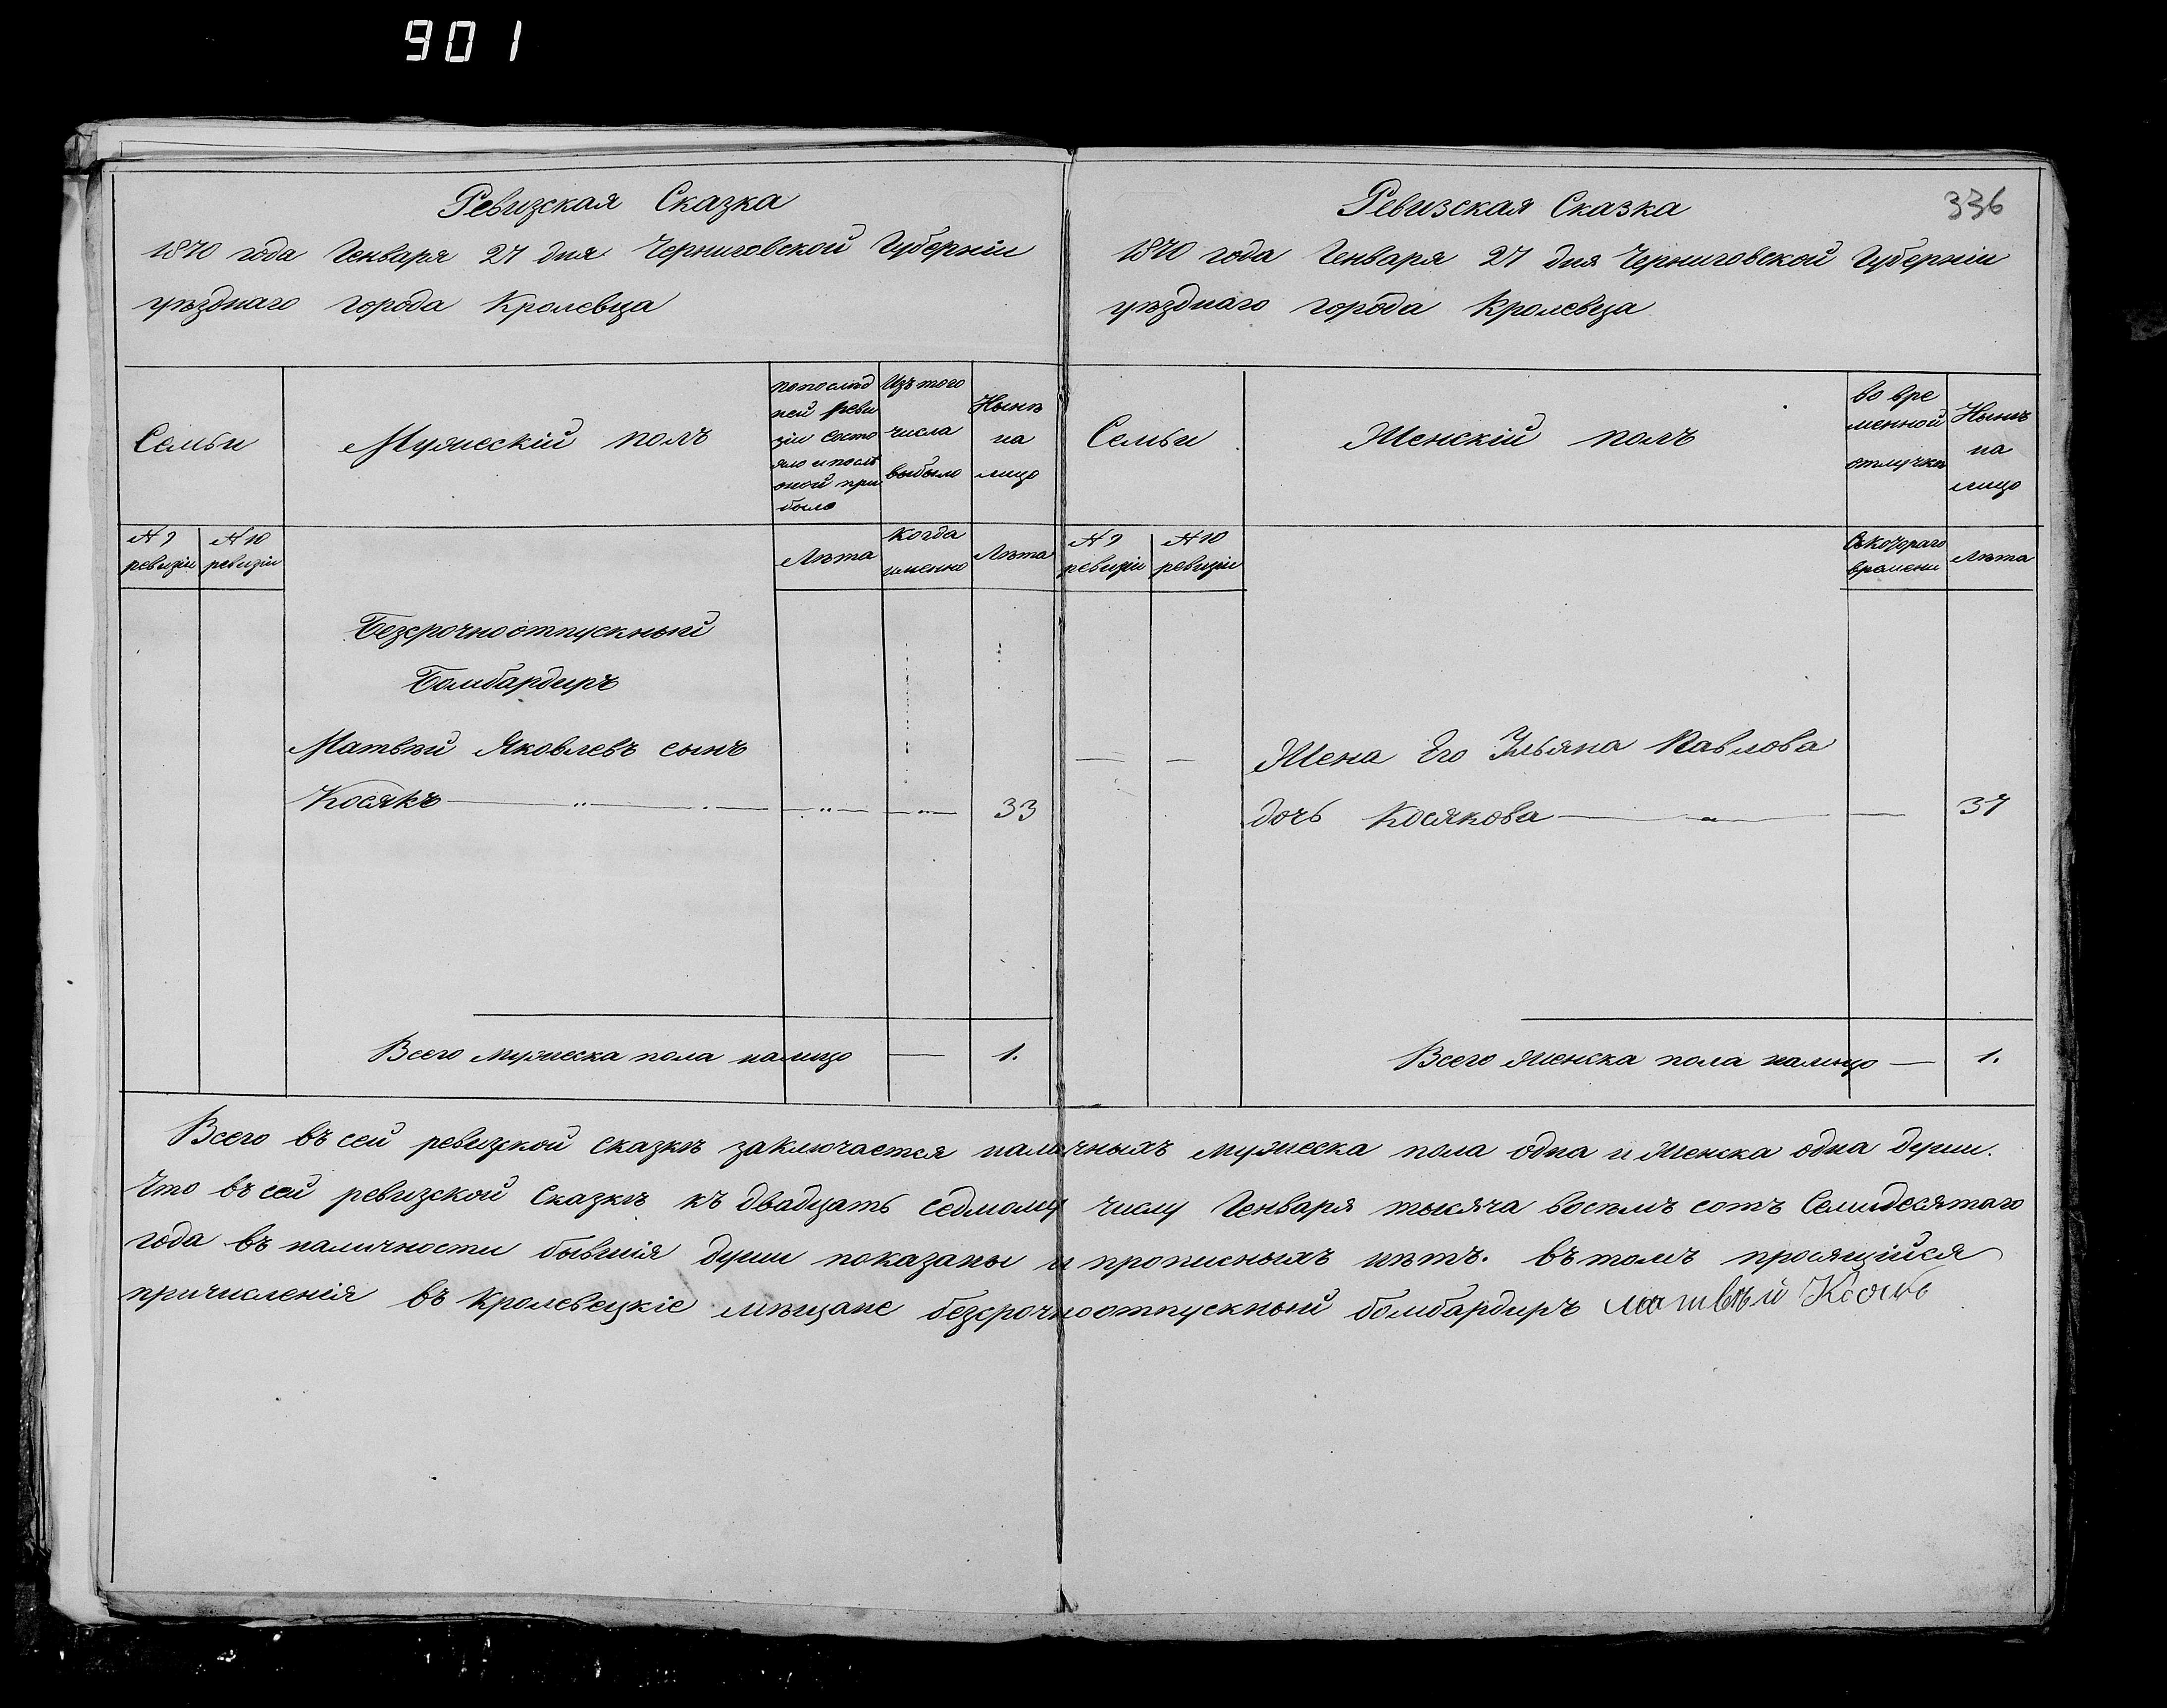 901
Ревизская Сказка
1870 года Генваря 27 дня Черниговской Губерніи
уѣзднаго города Кролевца
Семьи
Мужескій полъ
по послѣд
ней реви
зіи состо
яло и послѣ
оной при
было
Изъ того
числа
выбыло
Нынѣ
на
лицо
№ 9
ревизіи
№ 10
ревизіи
Лѣта
Когда
именно
Лѣта
Безсрочноотпускный
Бомбардиръ
Матвѣй Яковлевъ сынъ
Косякъ 33
Всего мужеска пола налицо — 1.
336
Ревизская Сказка
1870 года Генваря 27 дня Черниговской Губерніи
уѣзднаго города Кролевца
Семьи
Женскій полъ
во вре
менной
отлучкѣ
Нынѣ
на
лицо
№ 9
ревизіи
№ 10
ревизіи
Съ котораго
времени
Лѣта
Жена Его Ульяна Павлова
дочь Косякова — 37
Всего женска пола налицо — 1.
Всего въ сей ревизской сказкѣ заключается наличныхъ мужеска пола одна и Женска одна души.
Что въ сей ревизской Сказкѣ къ двадцать седмому числу Генваря тысяча восемъ сотъ Семидесятаго
года въ наличности бывшія души показаны и прописныхъ нѣтъ. въ томъ просящійся
причисленія въ Кролевецкіе мѣщане безсрочноотпускный бомбардиръ матвѣй Косякъ